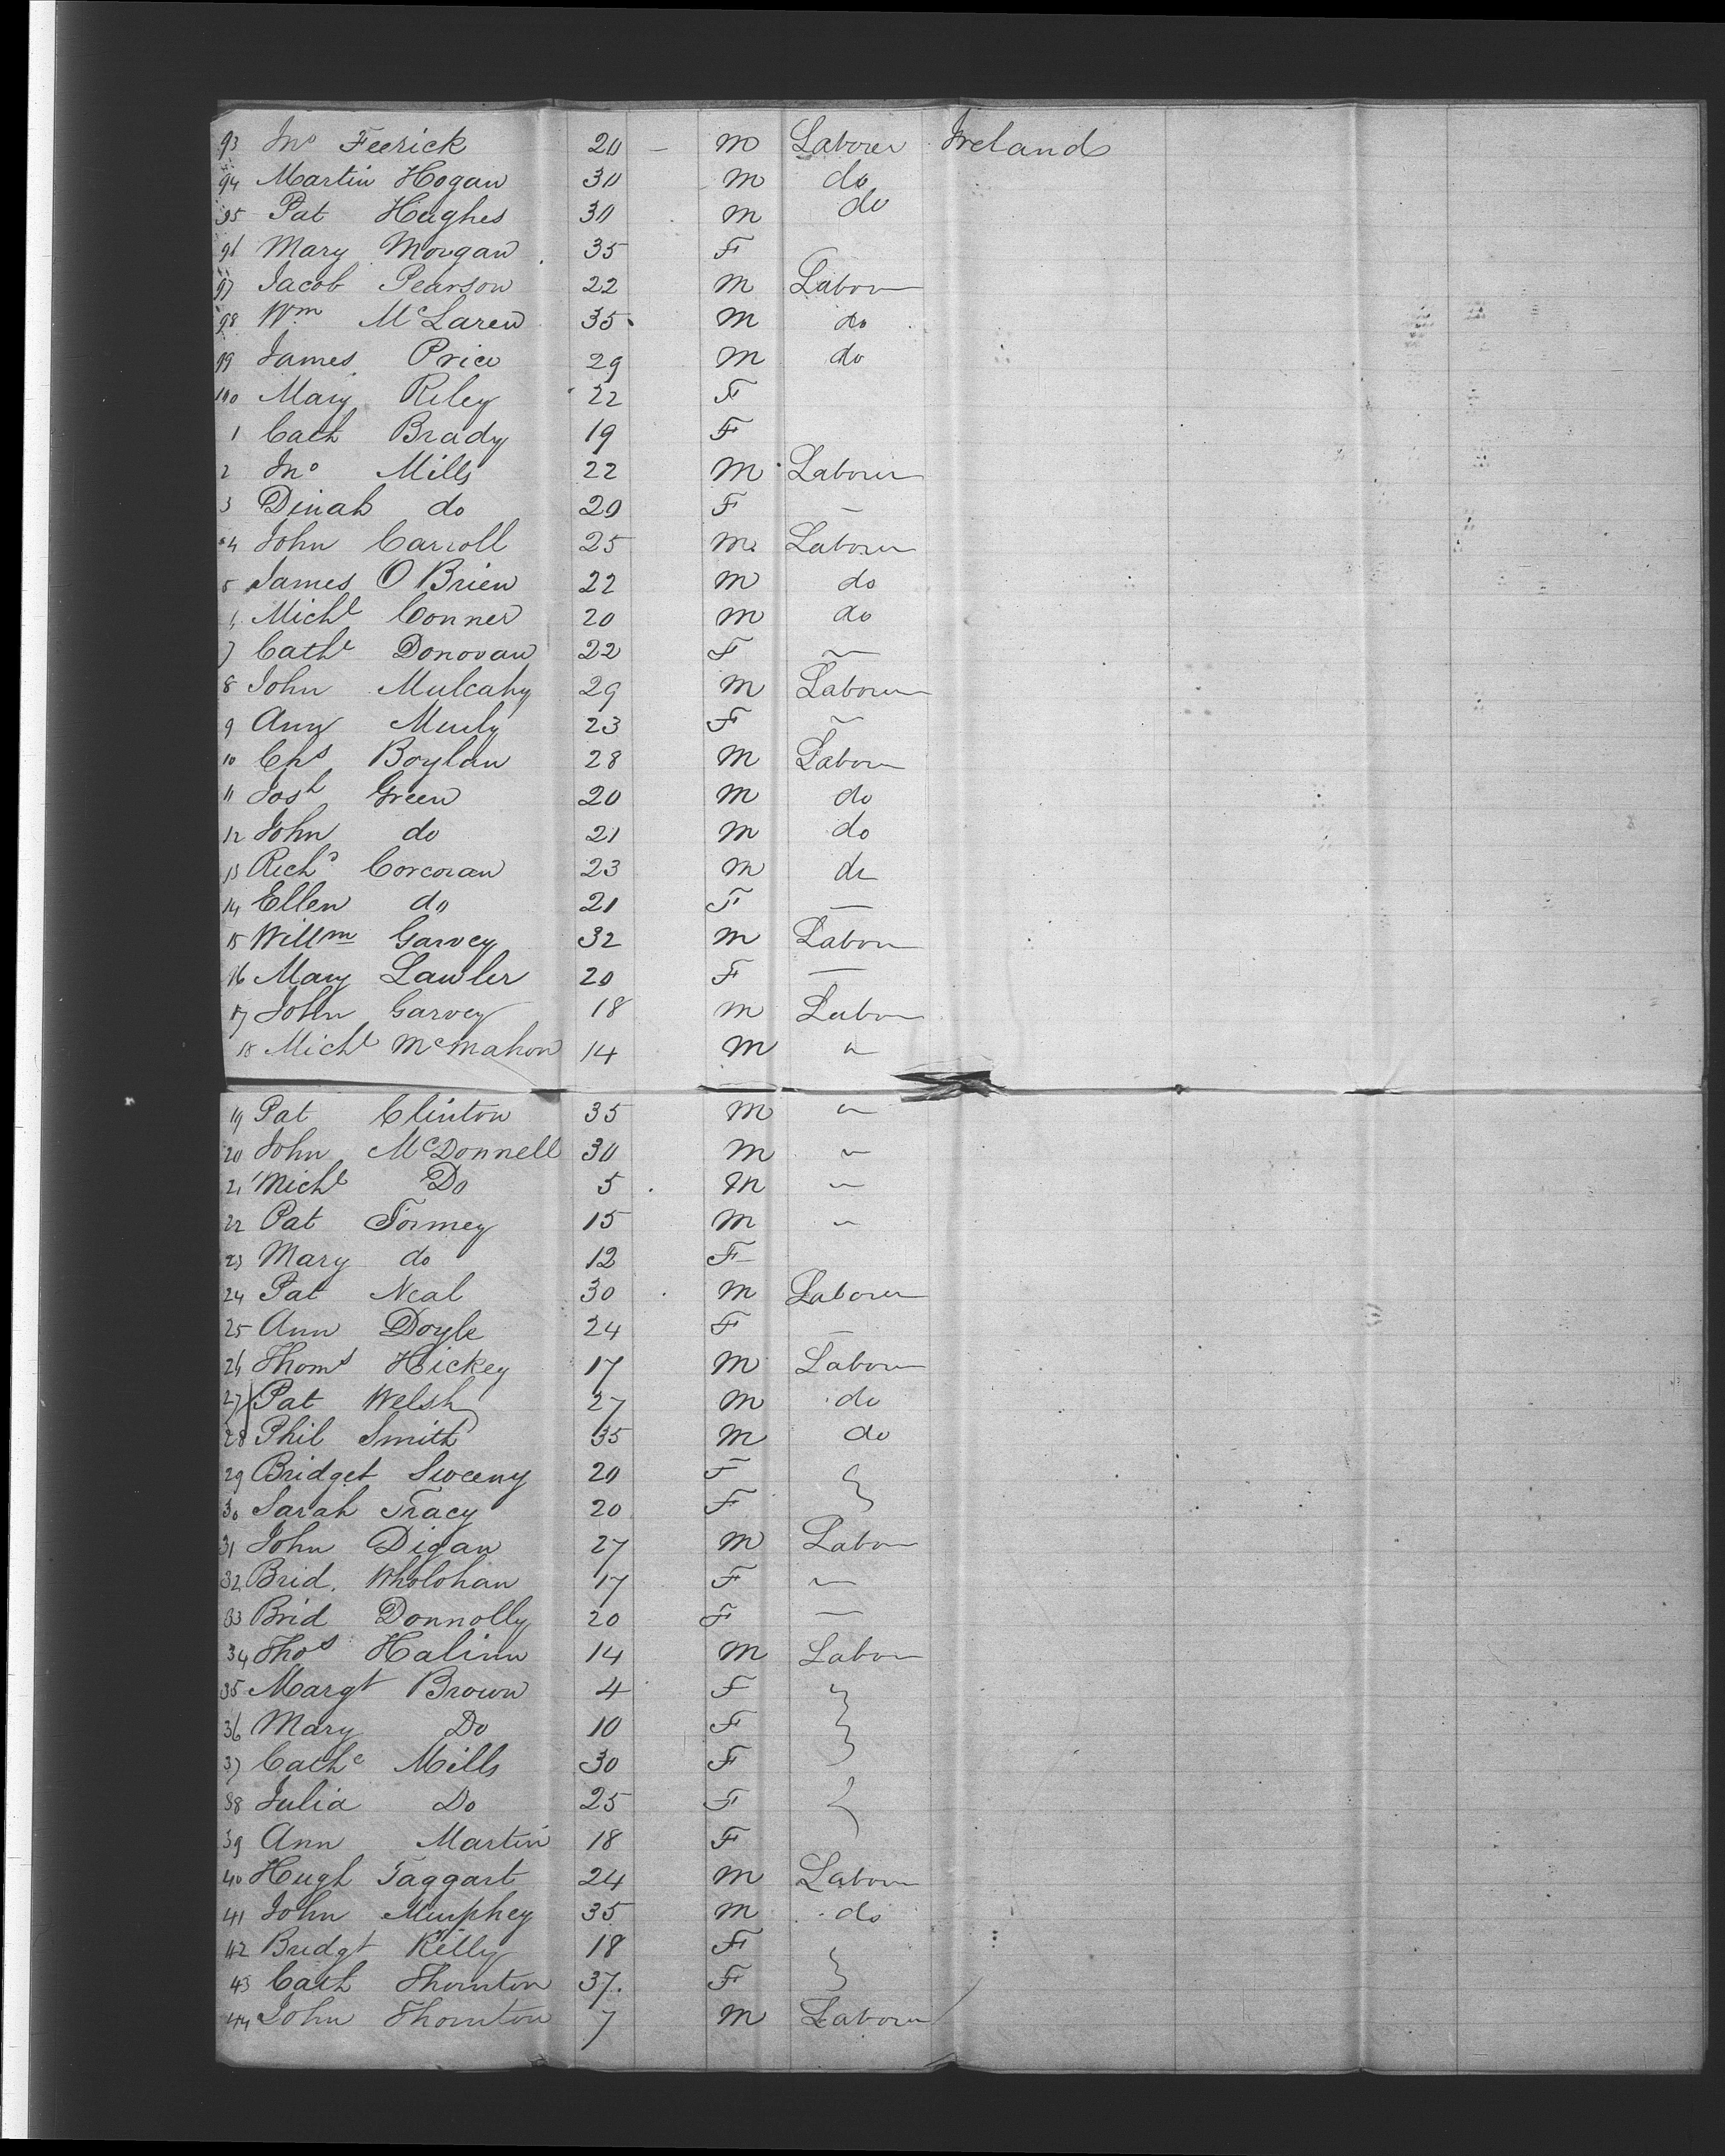 93 Jno Feerick 20 – M Laborer Ireland
94 Martin Hogan 30 M do
95 Pat Hughes 30 M do
96 Mary Morgan 35 F
97 Jacob Pearson 22 M Labour
98 Wm McLaren 35 M do
99 James Price 29 M do
100 Mary Riley 22 F
1 Cath Brady 19 F
2 Jno Mills 22 M Laborer
3 Dinah do 20 F —
4 John Carroll 25 M Laborer
5 James O Brien 22 M do
6 Michl Conner 20 M do
7 Cathe Donovan 22 F —
8 John Mulcahy 29 M Labourer
9 Ann 23 F —
10 Chs Boylan 28 M Labour
11 Josh Green 20 M do
12 John do 21 M do
13 Richd Corcoran 23 M do
14 Ellen do 21 F —
15 Willm Garvey 32 M Labour
16 Mary Lawler 20 F —
17 John Garvey 18 M Labour
18 Michl McMahon 14 M "
19 Pat Clinton 35 M "
20 John McDonnell 30 M "
21 Michl Do 5 M "
22 Pat Tormey 15 M "
23 Mary do 12 F
24 Pat Neal 30 M Laborer
25 Ann Doyle 24 F —
26 Thoms Hickey 17 M Labour
27 Pat Welsh 27 M do
28 Phil Smith 35 M do
29 Bridget Sweeny 20 F
30 Sarah Tracy 20 F
31 John Digan 27 M Labour
32 Brid. Wholohan 17 F —
33 Brid Donnolly 20 F —
34 Thos Halinn 14 M Labour
35 Margt Brown 4 F
36 Mary Do 10 F
37 Cathe Mills 30 F
38 Julia Do 25 F
39 Ann Martin 18 F
40 Hugh Taggart 24 M Labour
41 John Murphey 35 M do
42 Bridgt Kelly 18 F
43 Cath Thornton 37. F
44 John Thornton 7 M Labourer